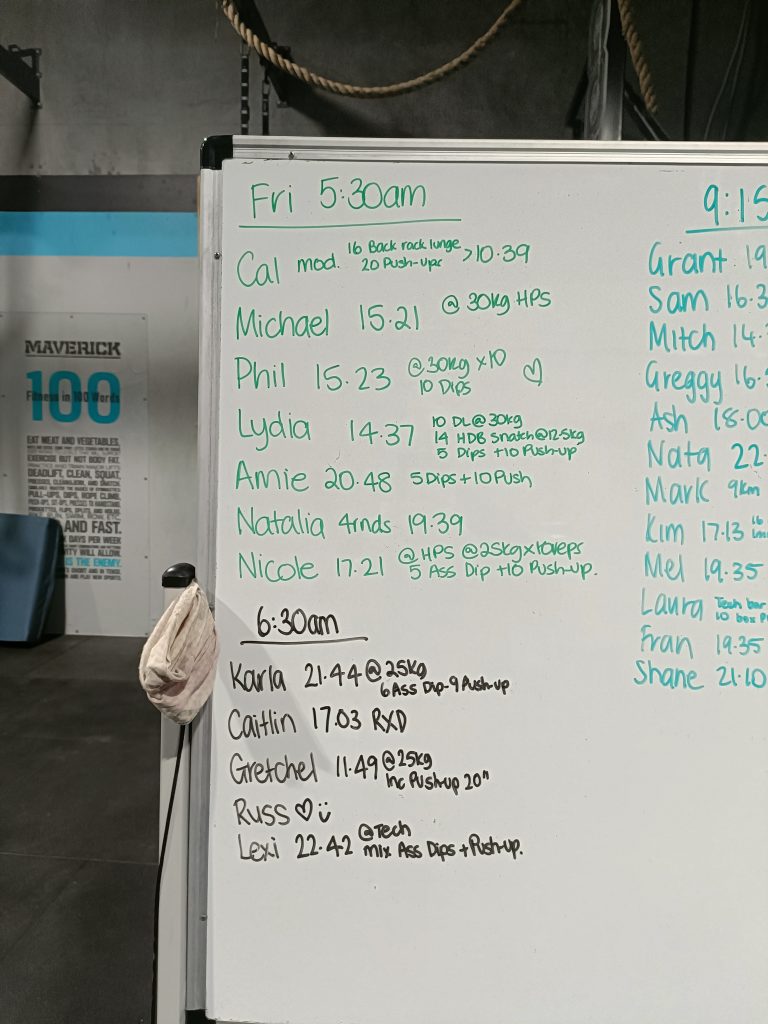 Fri 5:30am
Cal mod. 16 Back rack lunge
20 Push-ups >10.39
Michael 15.21 @ 30kg HPS
Phil 15.23 @30kg x10
10 Dips ♡
Lydia 14.37 10 DL@30kg
14 HDB Snatch@12.5kg
5 Dips +10 Push-up
Amie 20.48 5 Dips + 10 Push
Natalia 4rnds 19.39
Nicole 17.21 @HPS @25kg x 10reps
5 Ass Dip +10 Push-up.
6:30am
Karla 21.44 @25kg
6 Ass Dip-9 Push-up
Caitlin 17.03 RXD
Gretchel 11.49 @25kg
inc Push-up 20"
Russ ♡ ü
Lexi 22.42 @Tech
mix Ass Dips + Push-up.
9:15
Grant 19
Sam 16.3
Mitch 14.
Greggy 16.
Ash 18.00
Nata 22.
Mark 9km
Kim 17.13 16
Mel 19.35
Laura Tech bar
10 box P
Fran 19.35
Shane 21.10
MAVERICK
100
Fitness in 100 Words
EAT MEAT AND VEGETABLES,
EXERCISE BUT NOT BODY FAT.
DEADLIFT, CLEAN, SQUAT,
PULL-UPS, DIPS, ROPE CLIMB,
AND FAST.
DAYS PER WEEK
WILL ALLOW.
IS THE ENEMY.
AND PLAY NEW SPORTS.